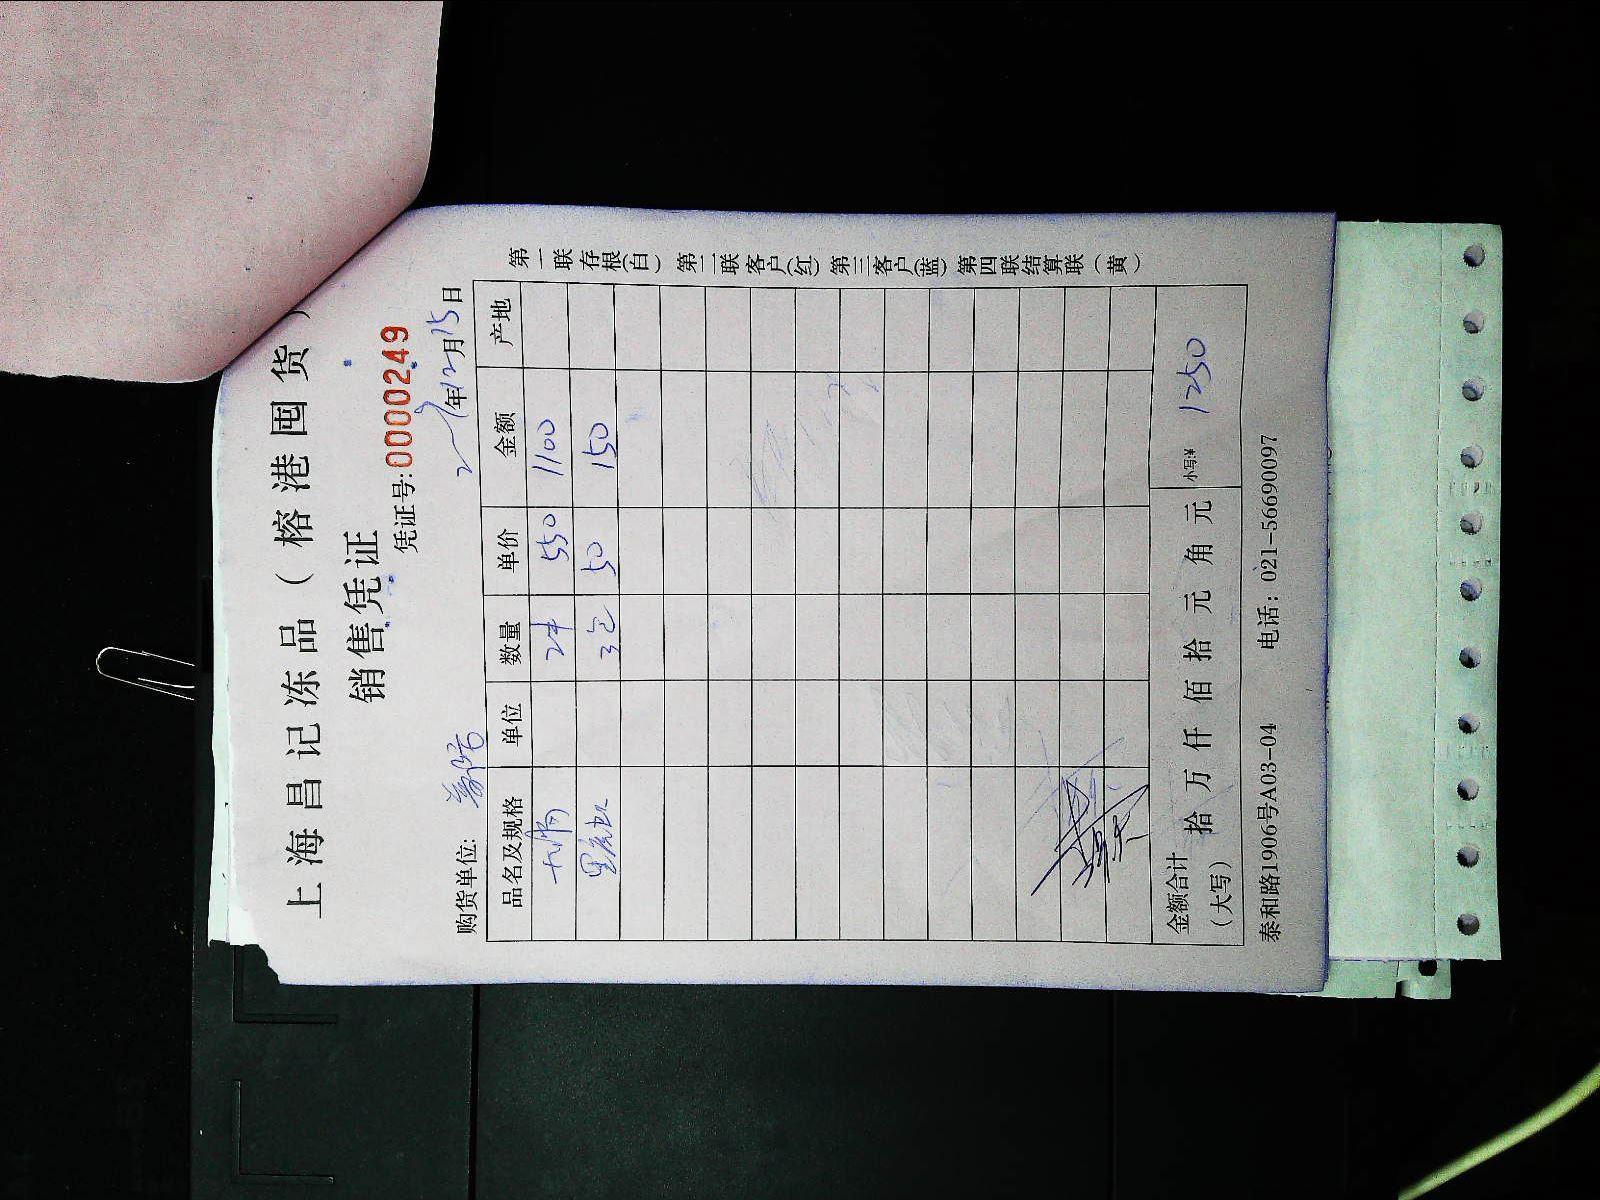 上海昌记冻品（榕港囤货）
销售凭证
凭证号:0000249
年12月15日
购货单位:
品名及规格 单位 数量 单价 金额 产地
2件 550 1100
黑虎虾 3包 50 150
金额合计（大写） 拾 万 仟 佰 拾 元 角 元 小写:¥ 1250
泰和路1906号A03-04 电话：021-56690097
第一联存根(白) 第二联客户(红) 第三客户(蓝) 第四联结算联（黄）